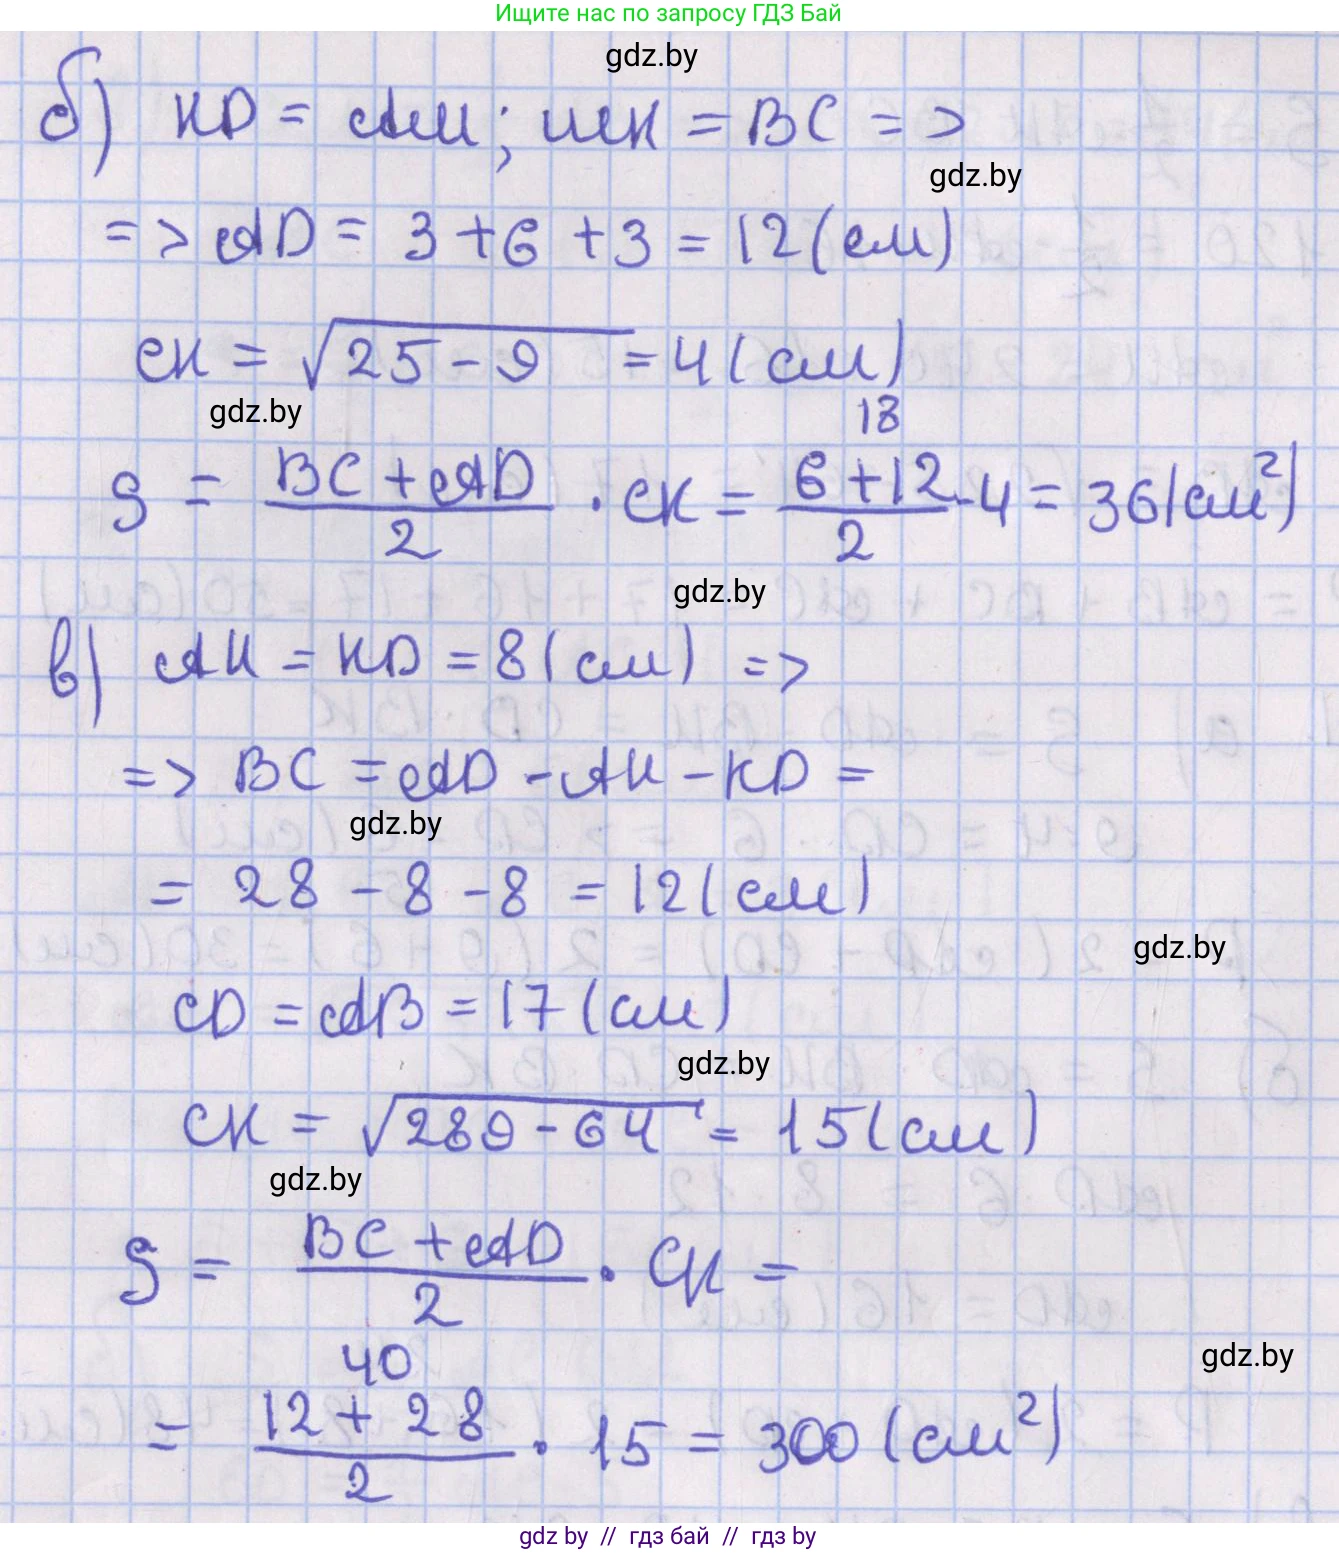 Ищите нас по запросу ГДЗ Бай
gdz.by
б) KD = AM; MK = BC =>
gdz.by
=> AD = 3 + 6 + 3 = 12 (см)
CK = √25 - 9 = 4 (см)
gdz.by
18
S = BC + AD / 2 · CK = 6 + 12 / 2 · 4 = 36 (см²)
gdz.by
в) AH = KD = 8 (см) =>
=> BC = AD - AH - KD =
gdz.by
= 28 - 8 - 8 = 12 (см)
gdz.by
CD = AB = 17 (см)
gdz.by
CK = √289 - 64 = 15 (см)
gdz.by
S = BC + AD / 2 · CK =
gdz.by
40
= 12 + 28 / 2 · 15 = 300 (см²)
gdz by // гдз бай // гдз by